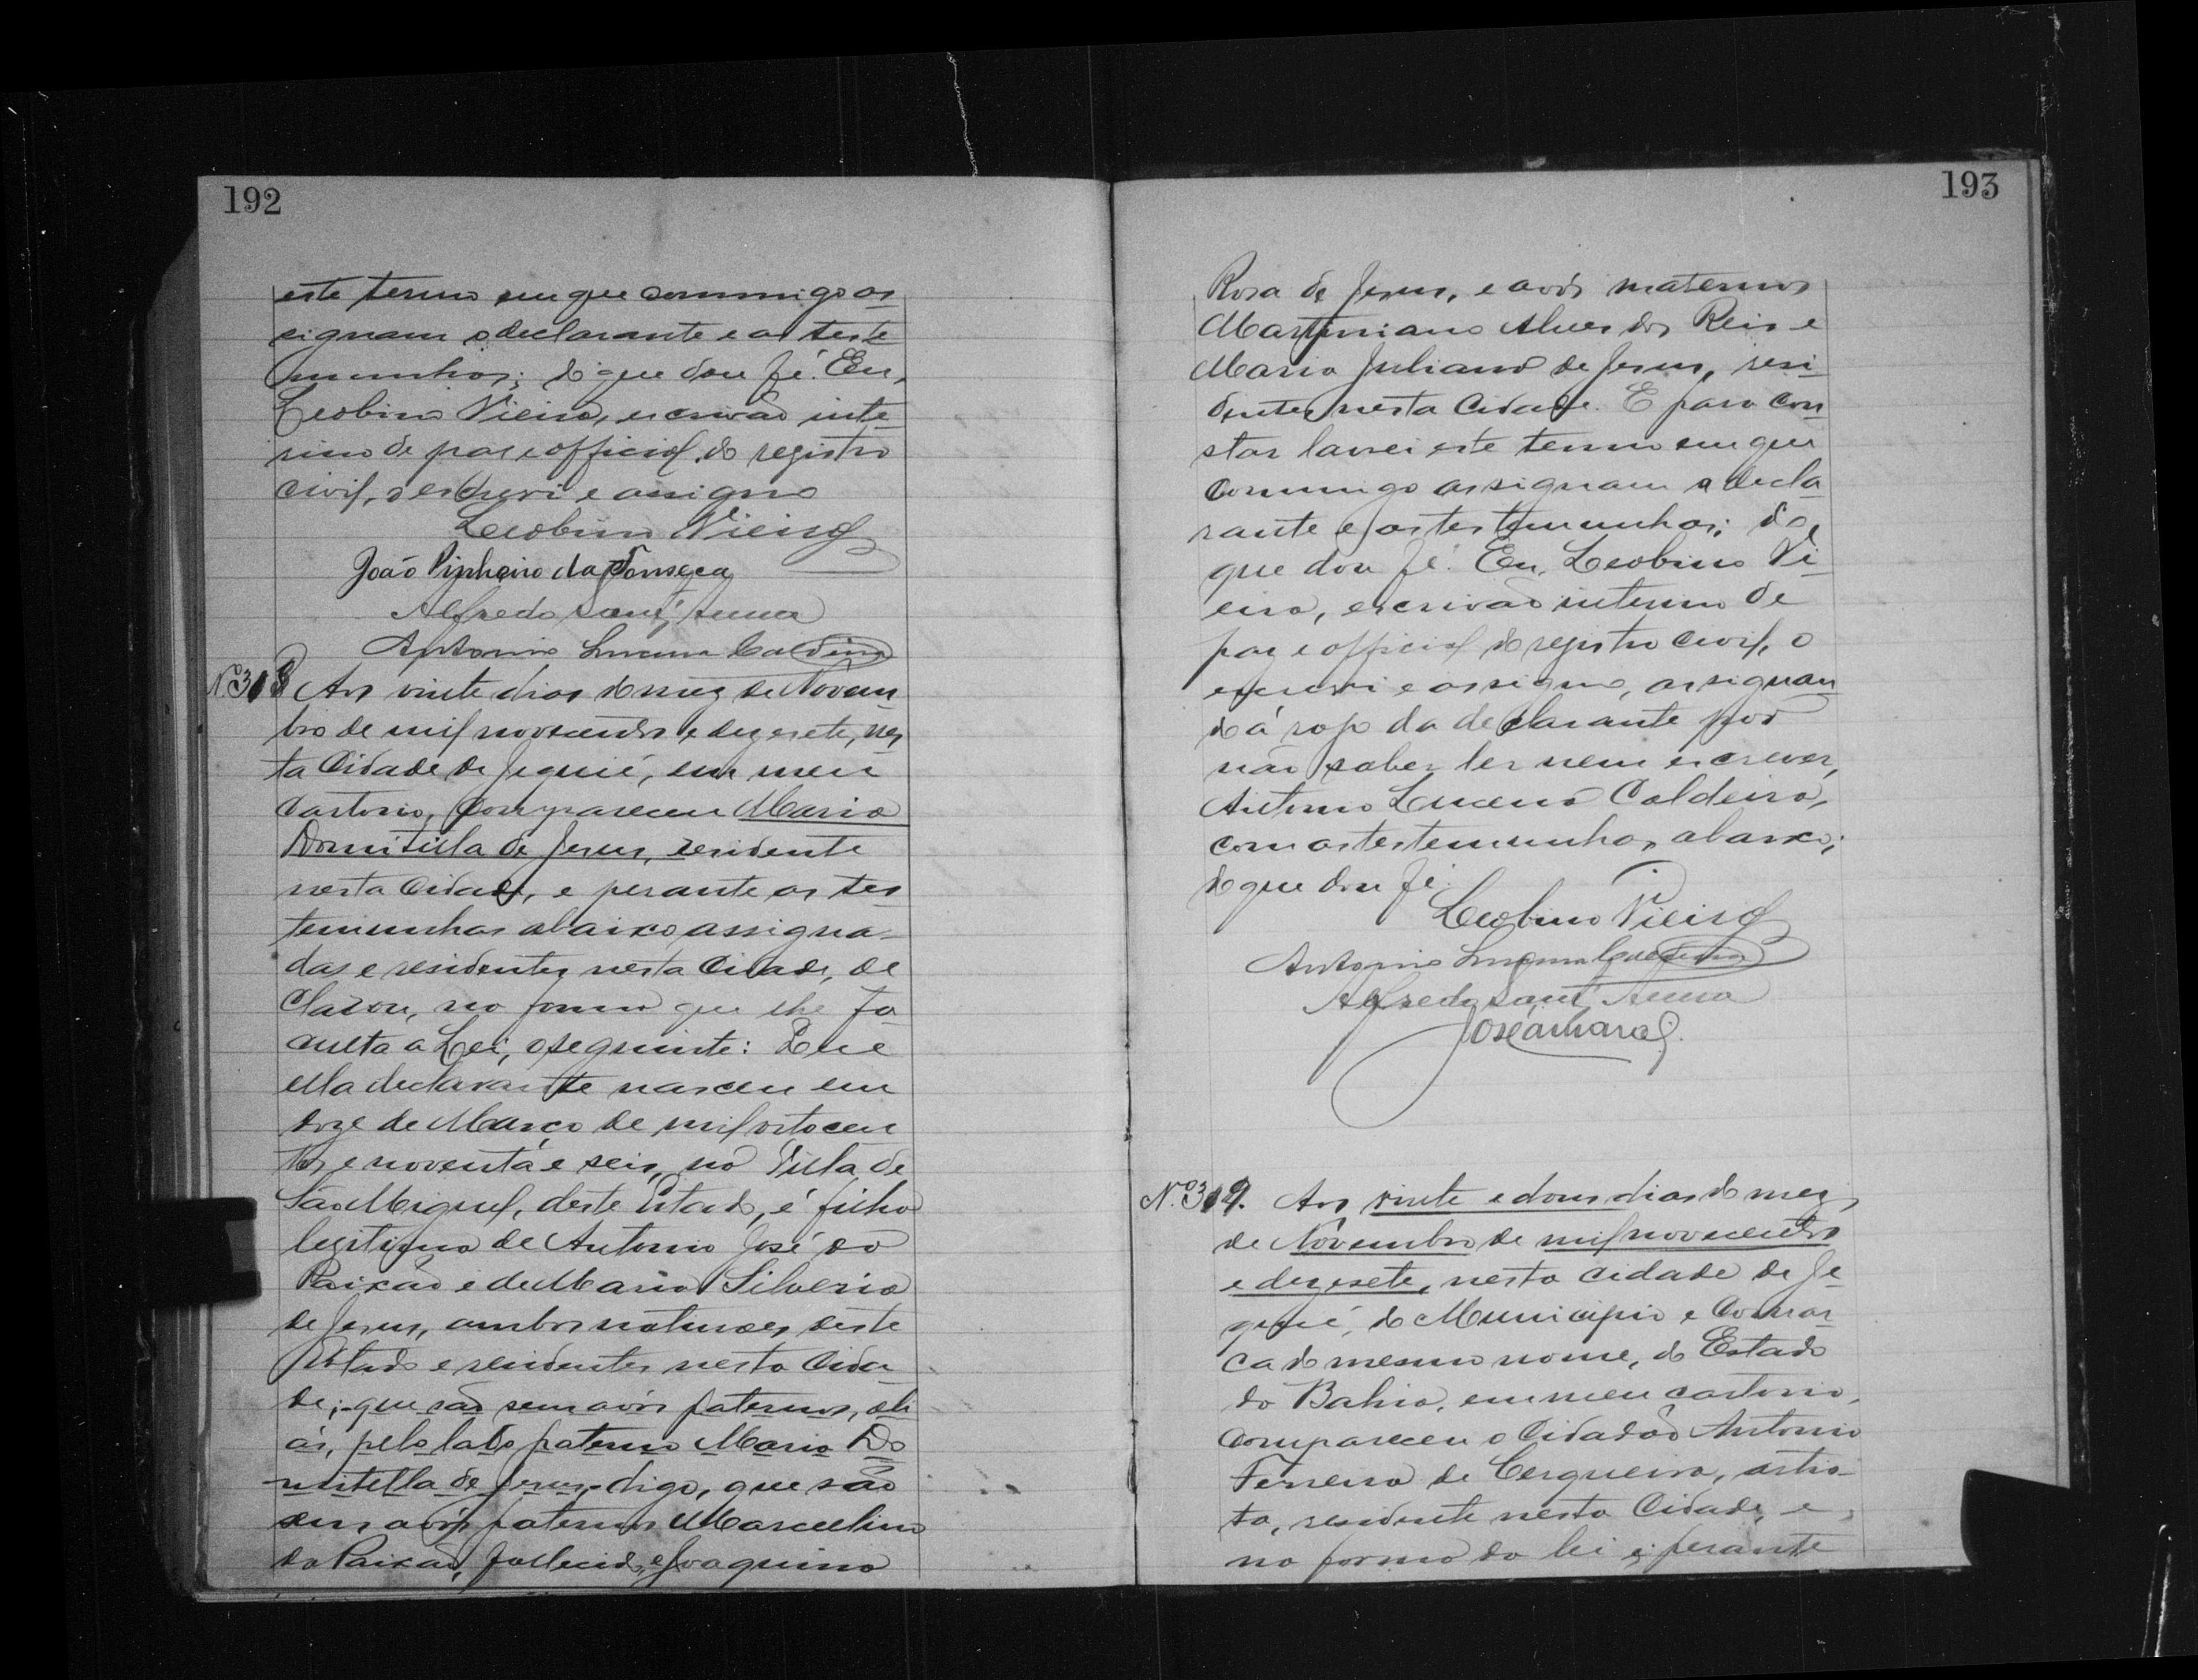 192
este termo em que commigo as
signam o declarante e as teste
munhas; do que dou fé. Eu,
Leobino Vieira, escrivão inte-
rino de paz e official do registro
civil, o escrevi e assigno
Leobino Vieira
João Pinheiro da Fonseca
Alfredo Sant'Anna
Antonio Lucena Caldeira
Nº 318 Aos vinte dias do mez de Novem-
bro de mil novecentos e dezesete, nes
ta Cidade de Jequié, em meu
Cartorio, compareceu Maria
Domitilla de Jesus, residente
nesta Cidade, e perante as tes
temunhas abaixo assigna-
das e residentes nesta Cidade, de
clarou, na forma que lhe fa-
culta a Lei, o seguinte: Que
ella declarante nasceu em
doze de Março de mil oitocen
tos e noventa e seis, na Villa de
São Miguel, deste Estado, é filha
legitima de Antonio José da
Paixão e de Maria Silveria
de Jesus, ambos naturaes deste
Estado e residentes nesta Cida-
de; que são seus avós paternos, ali
ás, pelo lado paterno Maria Do
mitilla de Jesus, digo, que são
seus avós paternos Marcelino
da Paixão, fallecido, e Joaquina
193
Rosa de Jesus, e avós maternos
Martiniano Alves dos Reis e
Maria Juliana de Jesus, resi-
dentes nesta Cidade. E para con
star lavrei este termo em que
commigo assignam a decla
rante e as testemunhas; do
que dou fé. Eu, Leobino Vi-
eira, escrivão interino de
paz e official do registro civil, o
escrevi e assigno, assignan
do á rogo da declarante por
não saber ler nem escrever,
Antonio Lucena Caldeira,
com as testemunhas abaixo;
do que dou fé.
Leobino Vieira
Antonio Lucena Caldeira
Alfredo Sant'Anna
José Amaral.
Nº 319. Aos vinte e dous dias do mez
de Novembro de mil novecentos
e dezesete, nesta cidade de Je-
quié, do Municipio e Comar
ca do mesmo nome, do Estado
da Bahia, em meu cartorio,
compareceu o Cidadão Antonio
Ferreira de Cerqueira, artis-
ta, residente nesta Cidade, e
na forma da lei e perante